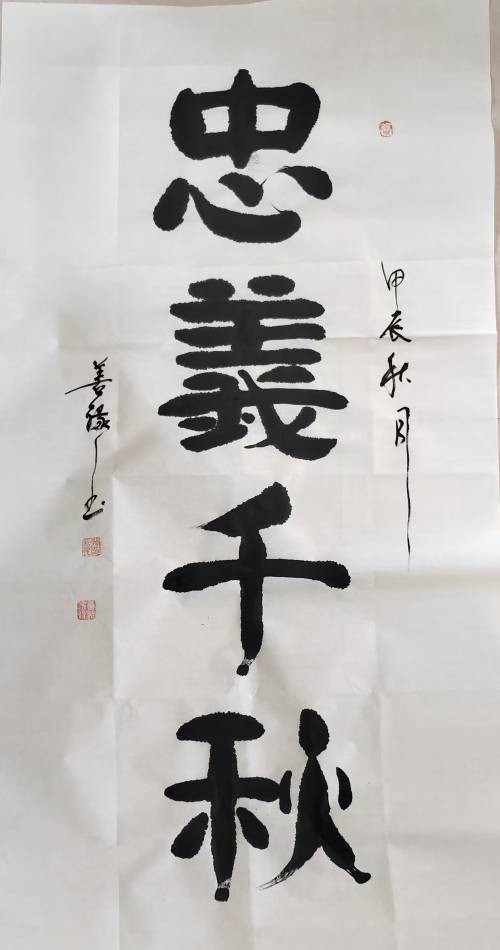 甲辰秋月
忠義千秋
善缘